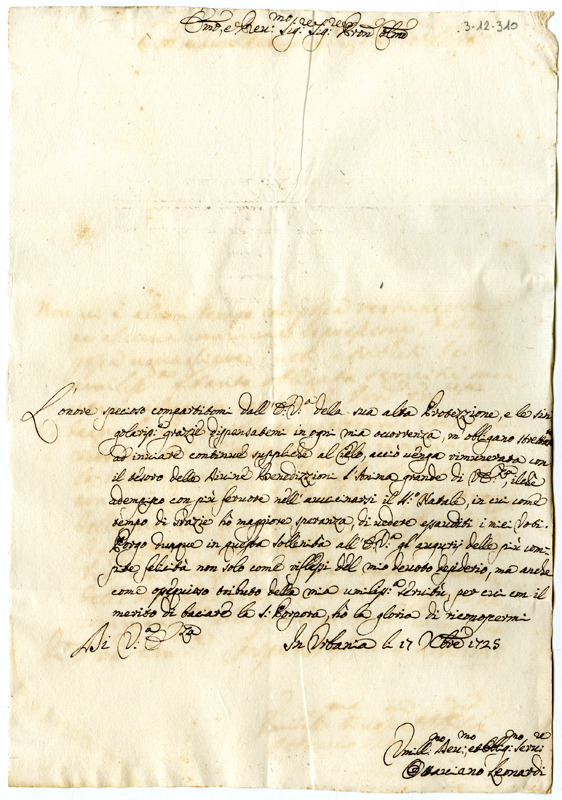 3-12-310
Em.mo, e Rev.mo Sig.re Sig.re Pron. Col.mo
L'onore specioso compartitomi dall'E.V.a della sua alta Protezzione, e le sin
golariss.e grazie dispensatemi in ogni mia ocorrenza, m'obligano strettam.te
ad inviare continue suppliche al Cielo, acciò venga rimunerata con
il tesoro delle Divine Benedizzioni l'Anima grande di V. Em.za, il che
adempisco con più fervore nell'avvicinarsi il S.o Natale, in cui come
tempo di Grazie hò maggiore speranza di vedere essauditi i miei Voti.
Porgo dunque in questa sollenità all'E.V.a gl'augurij delle più com
pite felicità non solo come riflessi del mio devoto desiderio, ma anche
come ossequioso tributo della mia umiliss.a servitù, per cui con il
merito di baciare la S. Porpora, hò la gloria di riconoscermi
Di V.a Em.za
In Urbania li 17 Xbre 1725
Umill.mo Dev.mo, et Obblig.mo Serv.re
Marciano Leonardi